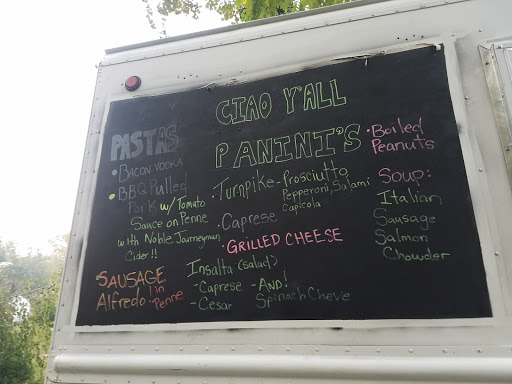 CIAO Y'ALL
PASTAS
• BACON VODKA
• BBQ Pulled
Pork w/Tomato
Sauce on Penne
with Noble Journeyman
Cider!!
• SAUSAGE
Alfredo! in
Penne
PANINI'S
• Turnpike - Prosciutto
Pepperoni, Salami
Capicola
• Caprese
• GRILLED CHEESE
Insalta (salad)
- Caprese - AND!
- Cesar Spinach Cheve
• Boiled
Peanuts
Soup:
Italian
Sausage
Salmon
Chowder